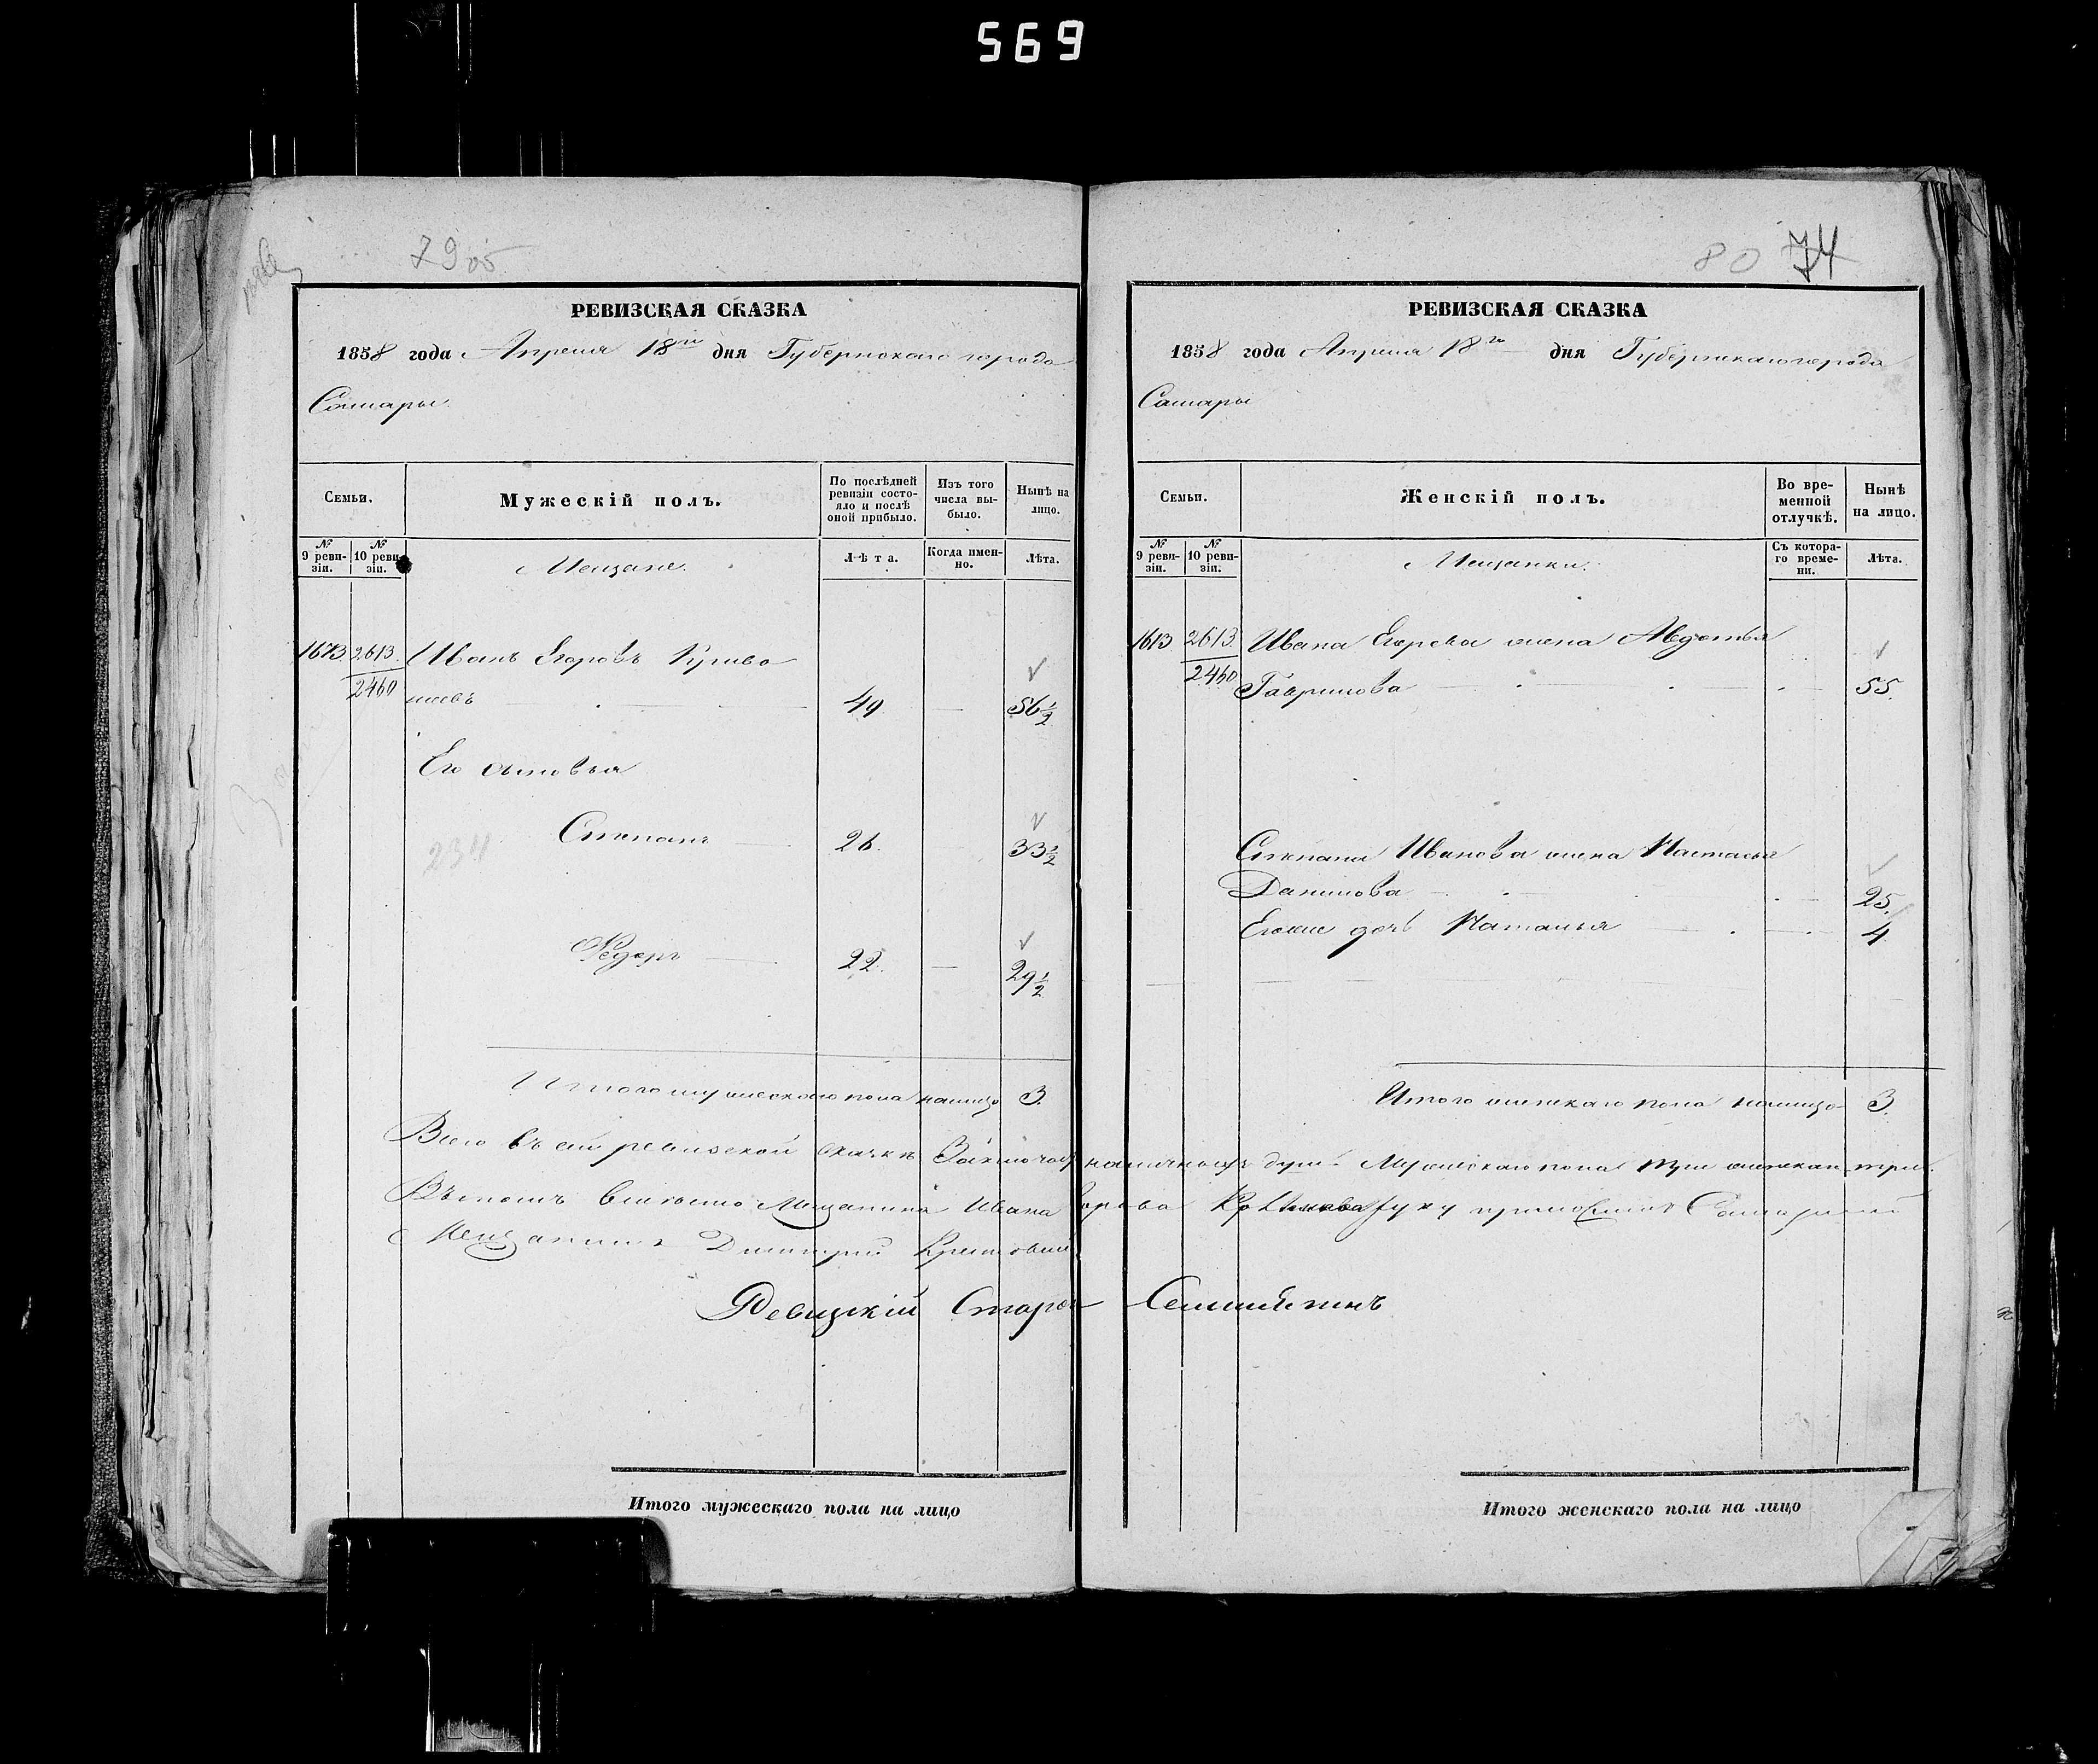 569
79 об
РЕВИЗСКАЯ СКАЗКА
1858 года Апреля 18го дня Губернскаго города
Самары.
Семьи.
Мужескій полъ.
По послѣдней ревизіи состояло и послѣ оной прибыло.
Изъ того числа выбыло.
Нынѣ на лицо.
№ 9 ревизіи.
№ 10 ревизіи.
Мещане.
Лѣта.
Когда именно.
Лѣта.
1613 2613 Иванъ Егоровъ Криво
2460
шеевъ 49 — 56½
Его сыновья
234 Степанъ 26. 33½
Федоръ 22. — 29½
Итого мужескаго пола налицо 3.
80 74
РЕВИЗСКАЯ СКАЗКА
1858 года Апреля 18го дня Губернскаго города
Самары
Семьи.
Женскій полъ.
Во временной отлучкѣ.
Нынѣ на лицо.
№ 9 ревизіи.
№ 10 ревизіи.
Мещанки.
Съ котораго времени.
Лѣта.
1613 2613 Ивана Егорова жена Авдотья
2460 Гаврилова 55.
Степана Иванова жена Настасья
Данилова 25.
Его же дочь Наталья 4
Итого женскаго пола налицо 3.
Всего въ сей ревизской скаске Заключает наличных душ Мужескаго пола три женскаго три.
Въ томъ вместо Мещанина Ивана Егорова руку приложилъ Самарский
Мещанинъ Дмитрий
Ревизскій Староста
Итого мужескаго пола на лицо
Итого женскаго пола на лицо